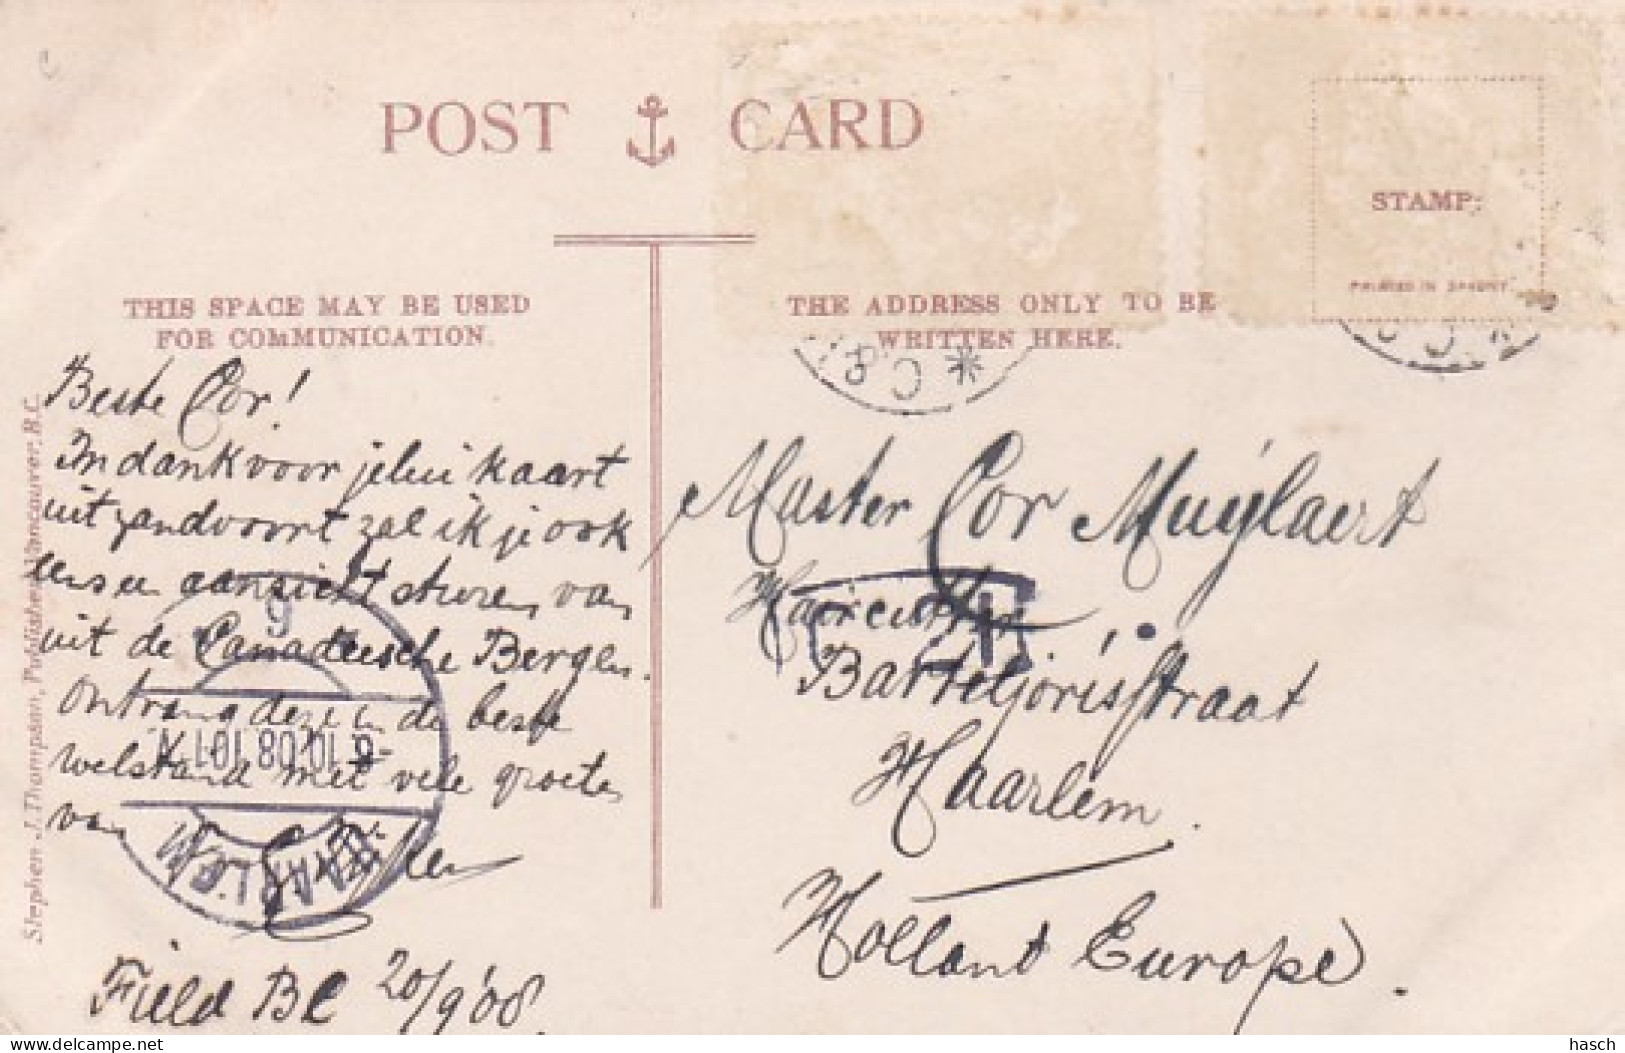 POST CARD
STAMP:
PRINTED IN SAXONY
THIS SPACE MAY BE USED
FOR COMMUNICATION.
THE ADDRESS ONLY TO BE
WRITTEN HERE.
Stephen J. Thompson, Publisher, Vancouver, B.C.
Beste Cor!
In dank voor jelui kaart
uit Zandvoort zal ik je ook
eens een aanzicht sturen van
uit de Canadeesche Bergen.
Ontvang deze in de beste
welstand met vele groeten
van
Field BC 20/9'08.
Master Cor Muijlaert
Haircutter
Barteljorisstraat
Haarlem.
Holland Europe.
HAARLEM
6.10.08
T
Website: https://www.delcampe.net
hasch